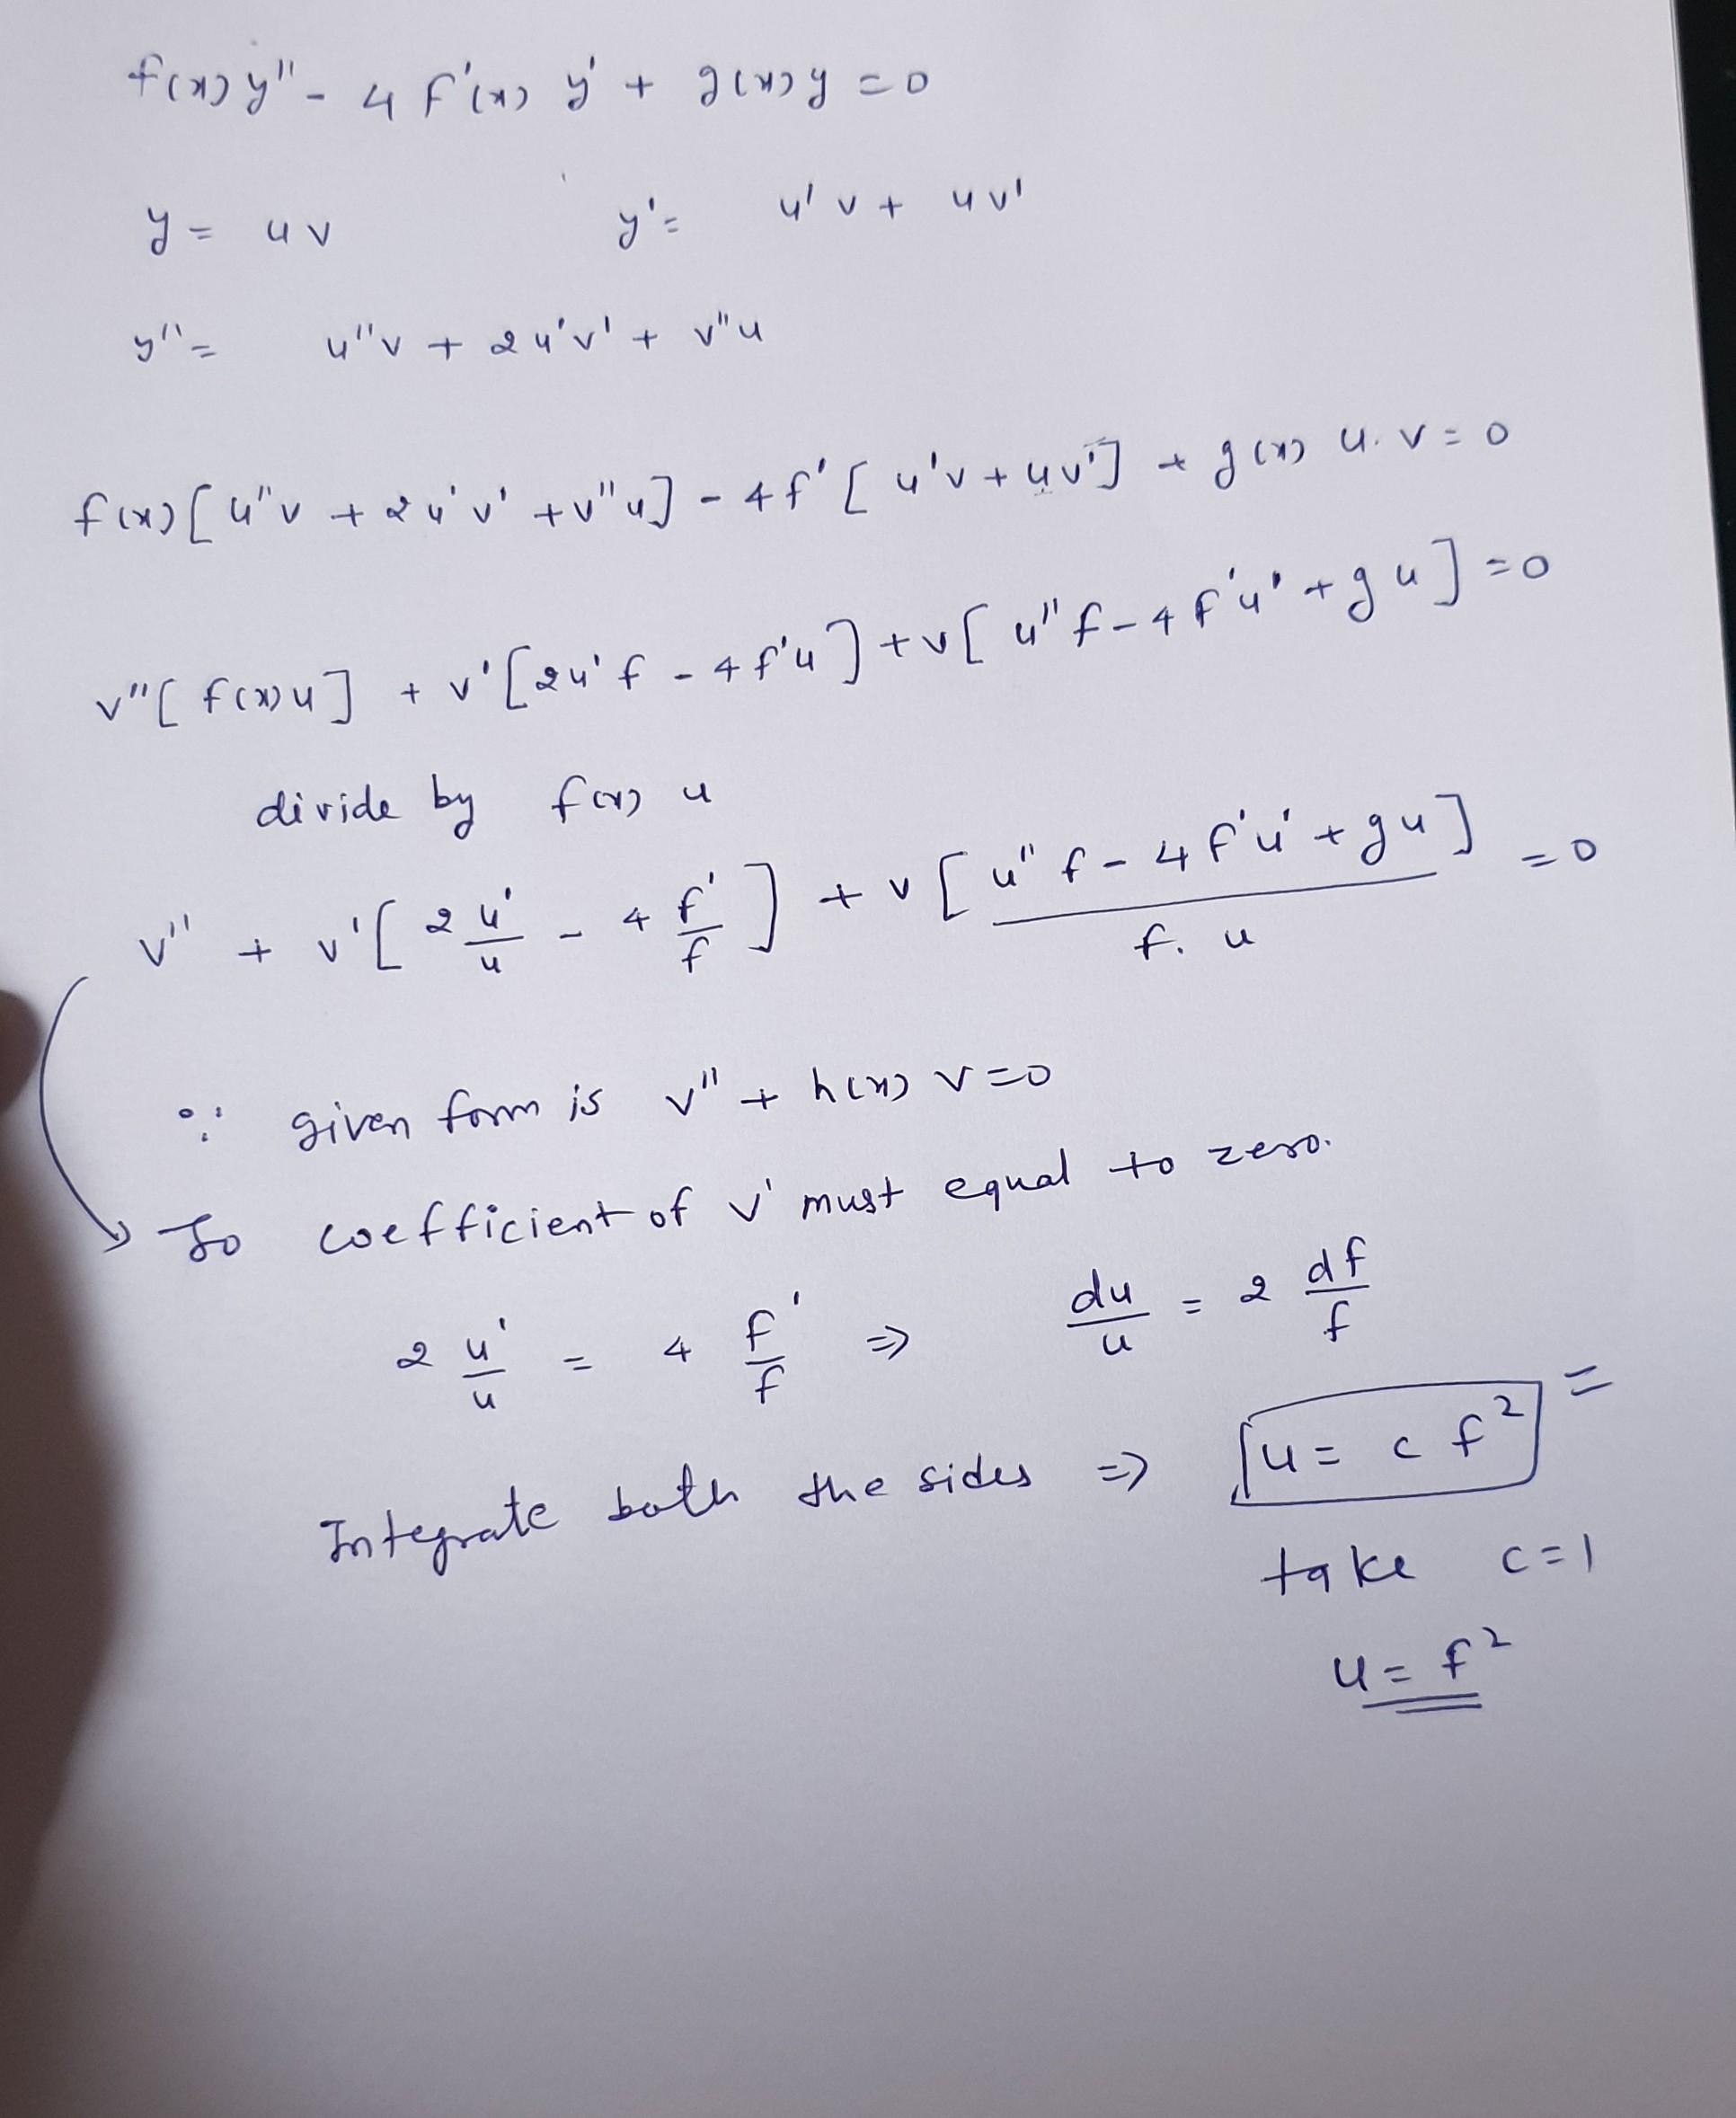 f(x)y'' - 4 f'(x) y' + g(x)y = 0
y = uv y' = u'v + uv'
y'' = u''v + 2u'v' + v''u
f(x)[u''v + 2u'v' + v''u] - 4f'[u'v + uv'] + g(x) u.v = 0
v''[f(x)u] + v'[2u'f - 4f'u] + v[u''f - 4f'u' + gu] = 0
divide by f(x) u
v'' + v'[2 u'/u - 4 f'/f] + v [u''f - 4f'u' + gu]/f.u = 0
∵ given form is v'' + h(x) v = 0
So coefficient of v' must equal to zero.
2 u'/u = 4 f'/f ⇒ du/u = 2 df/f
Integrate both the sides ⇒ u = c f² =
take c=1
u = f²